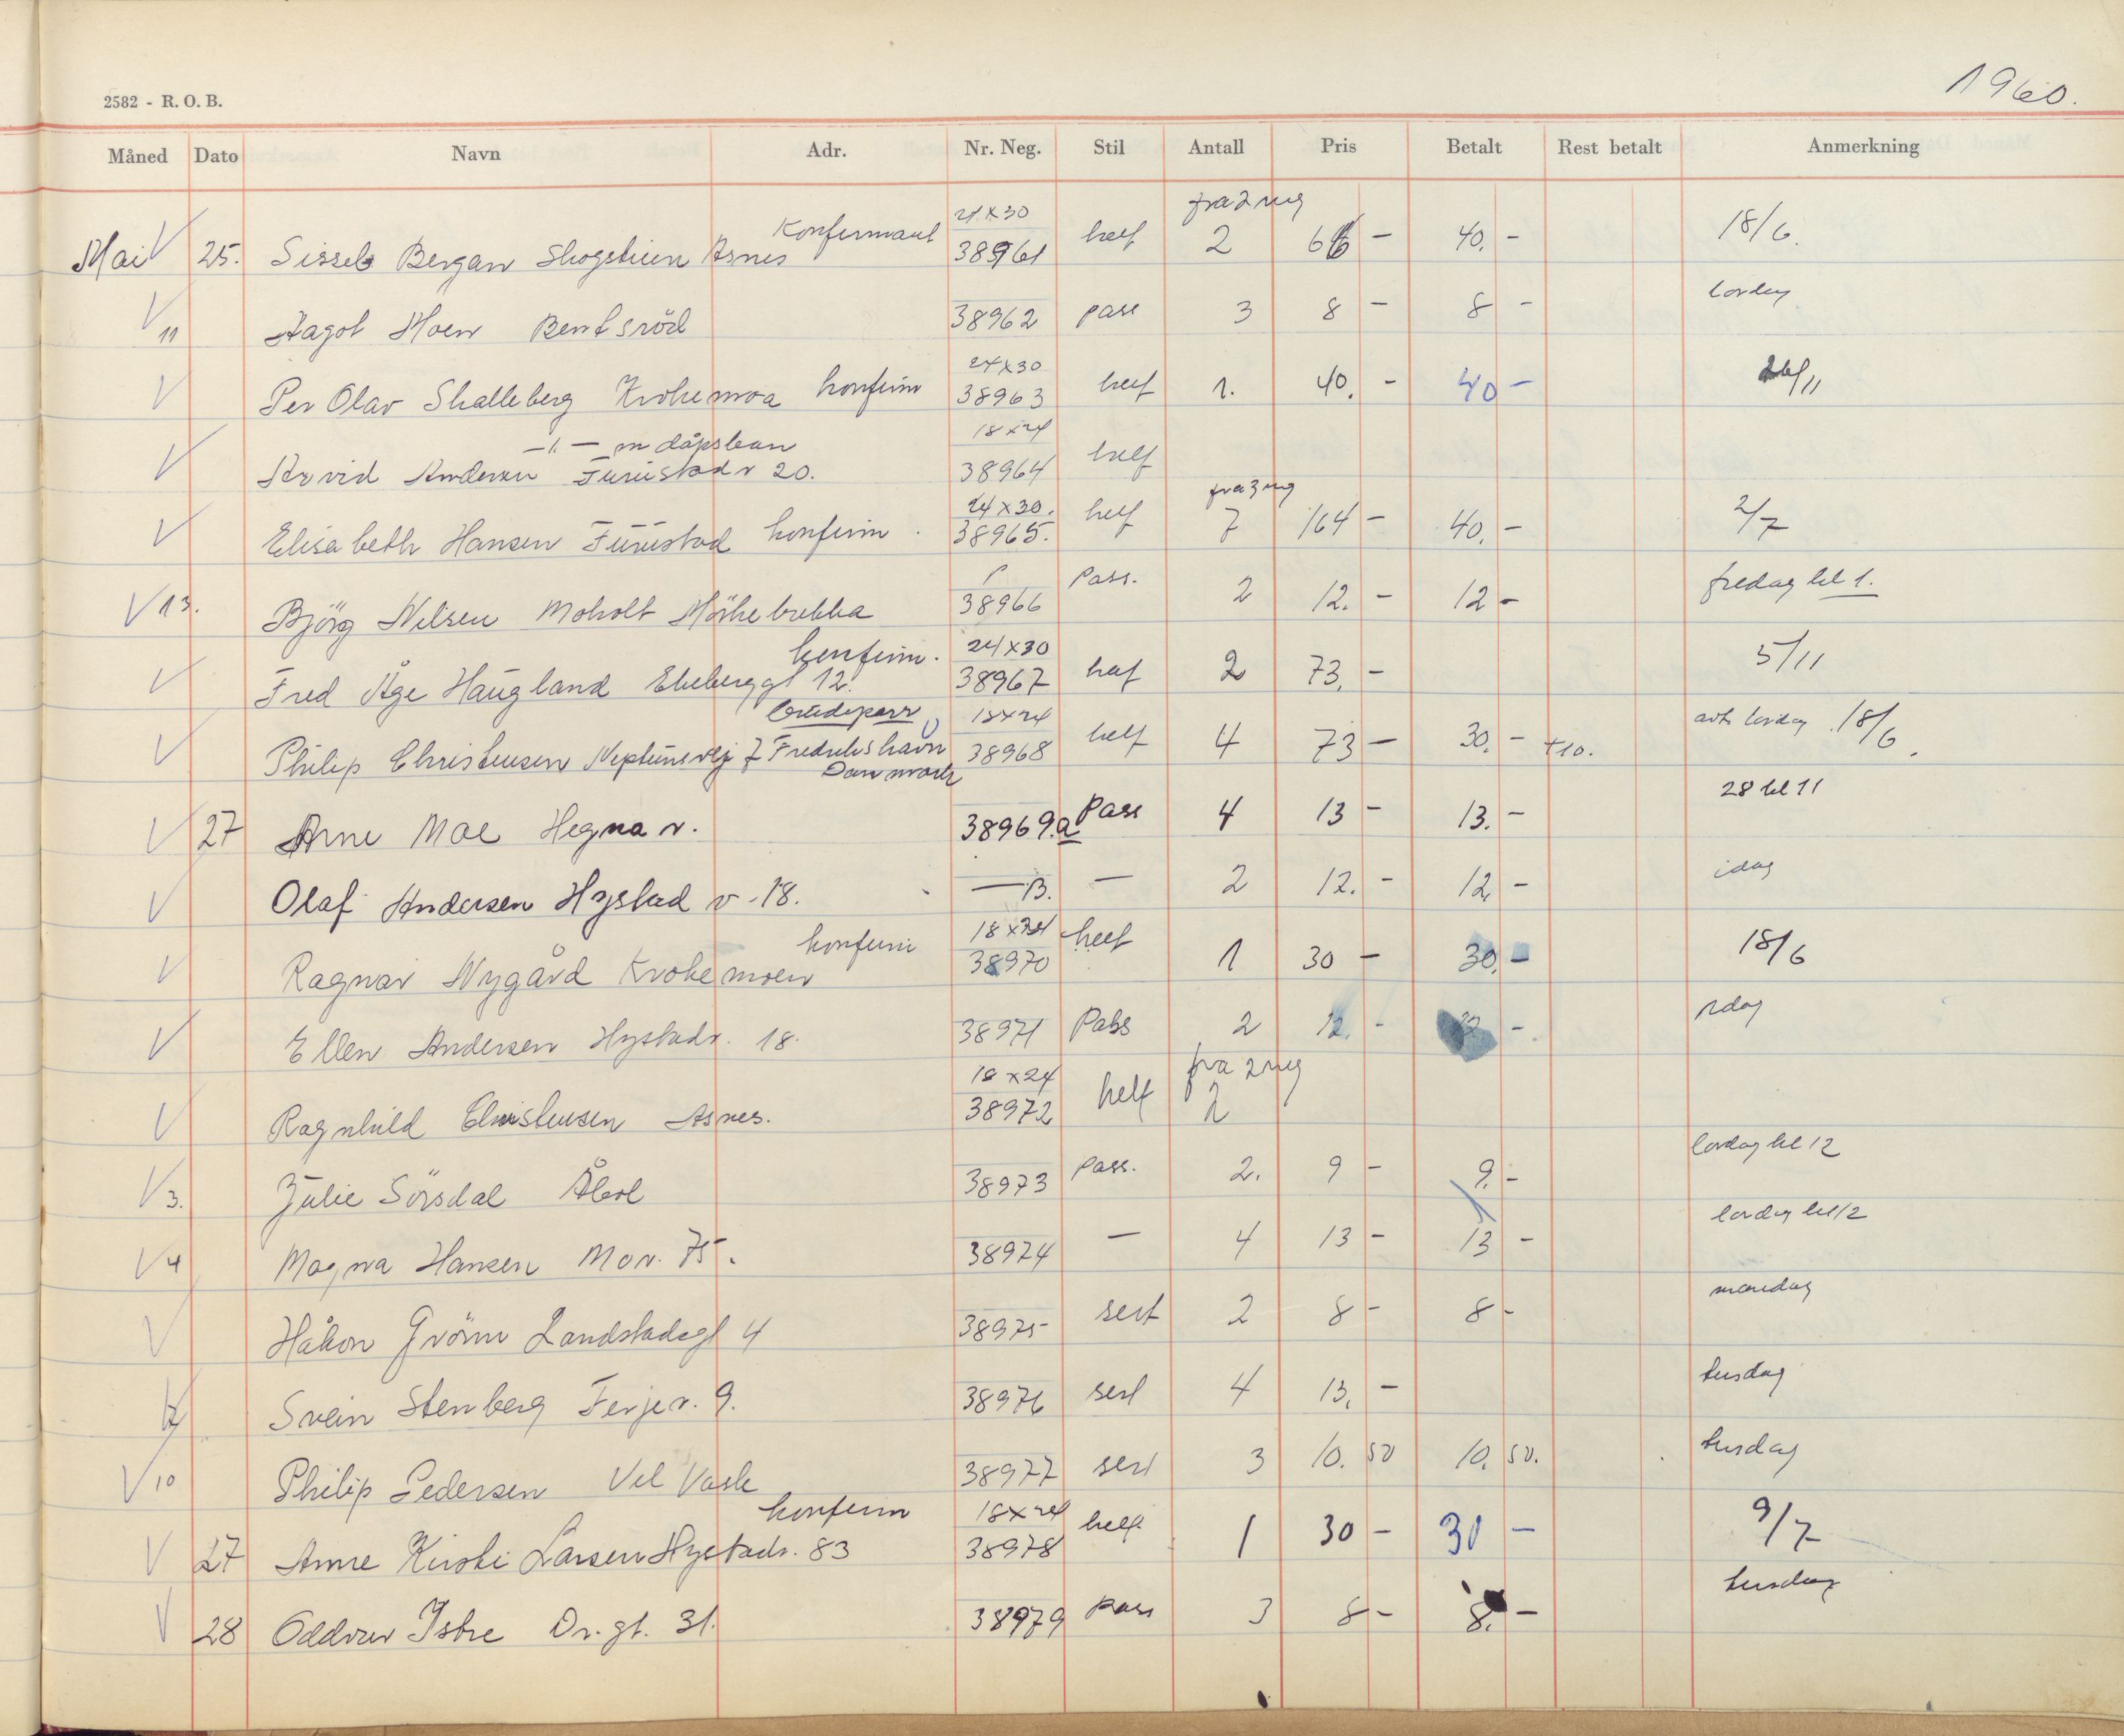 1960.
2582 - R. O. B.
Måned Dato Navn Adr. Nr. Neg. Stil Antall Pris Betalt Rest betalt Anmerkning
Konfirmant 24x30 fra 2 neg
Mai V 25. Sissel Bergan Skogstien Åsnes 38961 helf 2 66 - 40. - 18/6.
V 11 Aagot Moen Bentsröd 38962 pass 3 8 - 8 - lördag
24x30
V Per Olav Skalleberg Krokemoa konfirm 38963 helf 1. 40. - 40 - 26/11
-"- m dåpsbarn 18x24
V Arvid Andersen Furustadv 20. 38964 helf
24x30. fra 3 neg
V Elisabeth Hansen Furustad konfirm. 38965. helf 7 164 - 40. - 2/7
V 13. Björg Nilsen Moholt Mörkebrekka 38966 Pass. 2 12. - 12 - fredag kl 1.
konfirm. 24x30
V Fred Åge Haugland Ekeberggt 12. 38967 helf 2 73. - 5/11
brudepar 18x24
V Philip Christensen Neptunsvej 7 Fredrikshavn 38968 helf 4 73 - 30. - +10. avh lördag 18/6.
Danmark
V 27 Arne Moe Hegna v. 38969.a Pass 4 13 - 13. - 28 kl 11
V Olaf Andersen Hystad v. 18. —B. — 2 12. - 12, - idag
konfirm 18x24
V Ragnar Nygård Krokemoen 38970 helf 1 30 - 30. - 18/6
V Ellen Andersen Hystadv. 18. 38971 Pass 2 12. - 12 -. idag
18x24 fra 2 neg
V Ragnhild Christensen Åsnes. 38972 helf 2
V 3. Julie Sörsdal Åbol 38973 Pass. 2. 9 - 9. - lördag kl 12
V 4 Magna Hansen Mov. 75. 38974 — 4 13 - 13 - lördag kl 12
V Håkon Grönn Landstadsgt 4 38975 sert 2 8 - 8 - mandag
V Svein Stenberg Ferjev. 9. 38976 sert 4 13, - tirsdag
V 10 Philip Pedersen Vel Vask 38977 sert 3 10. 50 10. 50. tirsdag
konfirm 18x24
V 27 Anne Kirsti Larsen Hystadv. 83 38978 helf. 1 30 - 30 - 9/7
V 28 Oddvar Istre Dr. gt. 31. 38979 pass 3 8 - 8. - tirsdag